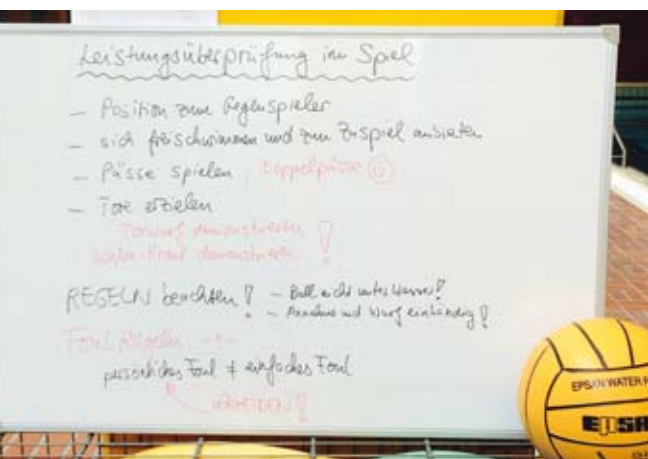 Leistungsüberprüfung im Spiel
- Position zum Gegenspieler
- sich freischwimmen und zum Zuspiel anbieten
- Pässe spielen, Doppelpässe (15)
- Tore erzielen
Torwurf demonstrieren
Wasser-Kraul demonstrieren !
REGELN beachten! - Ball nicht unter Wasser!
- Annahme und Wurf einhändig!
Foul Regeln
persönliches Foul ≠ einfaches Foul
VERMEIDEN!
EPSAN WATER
EPSA